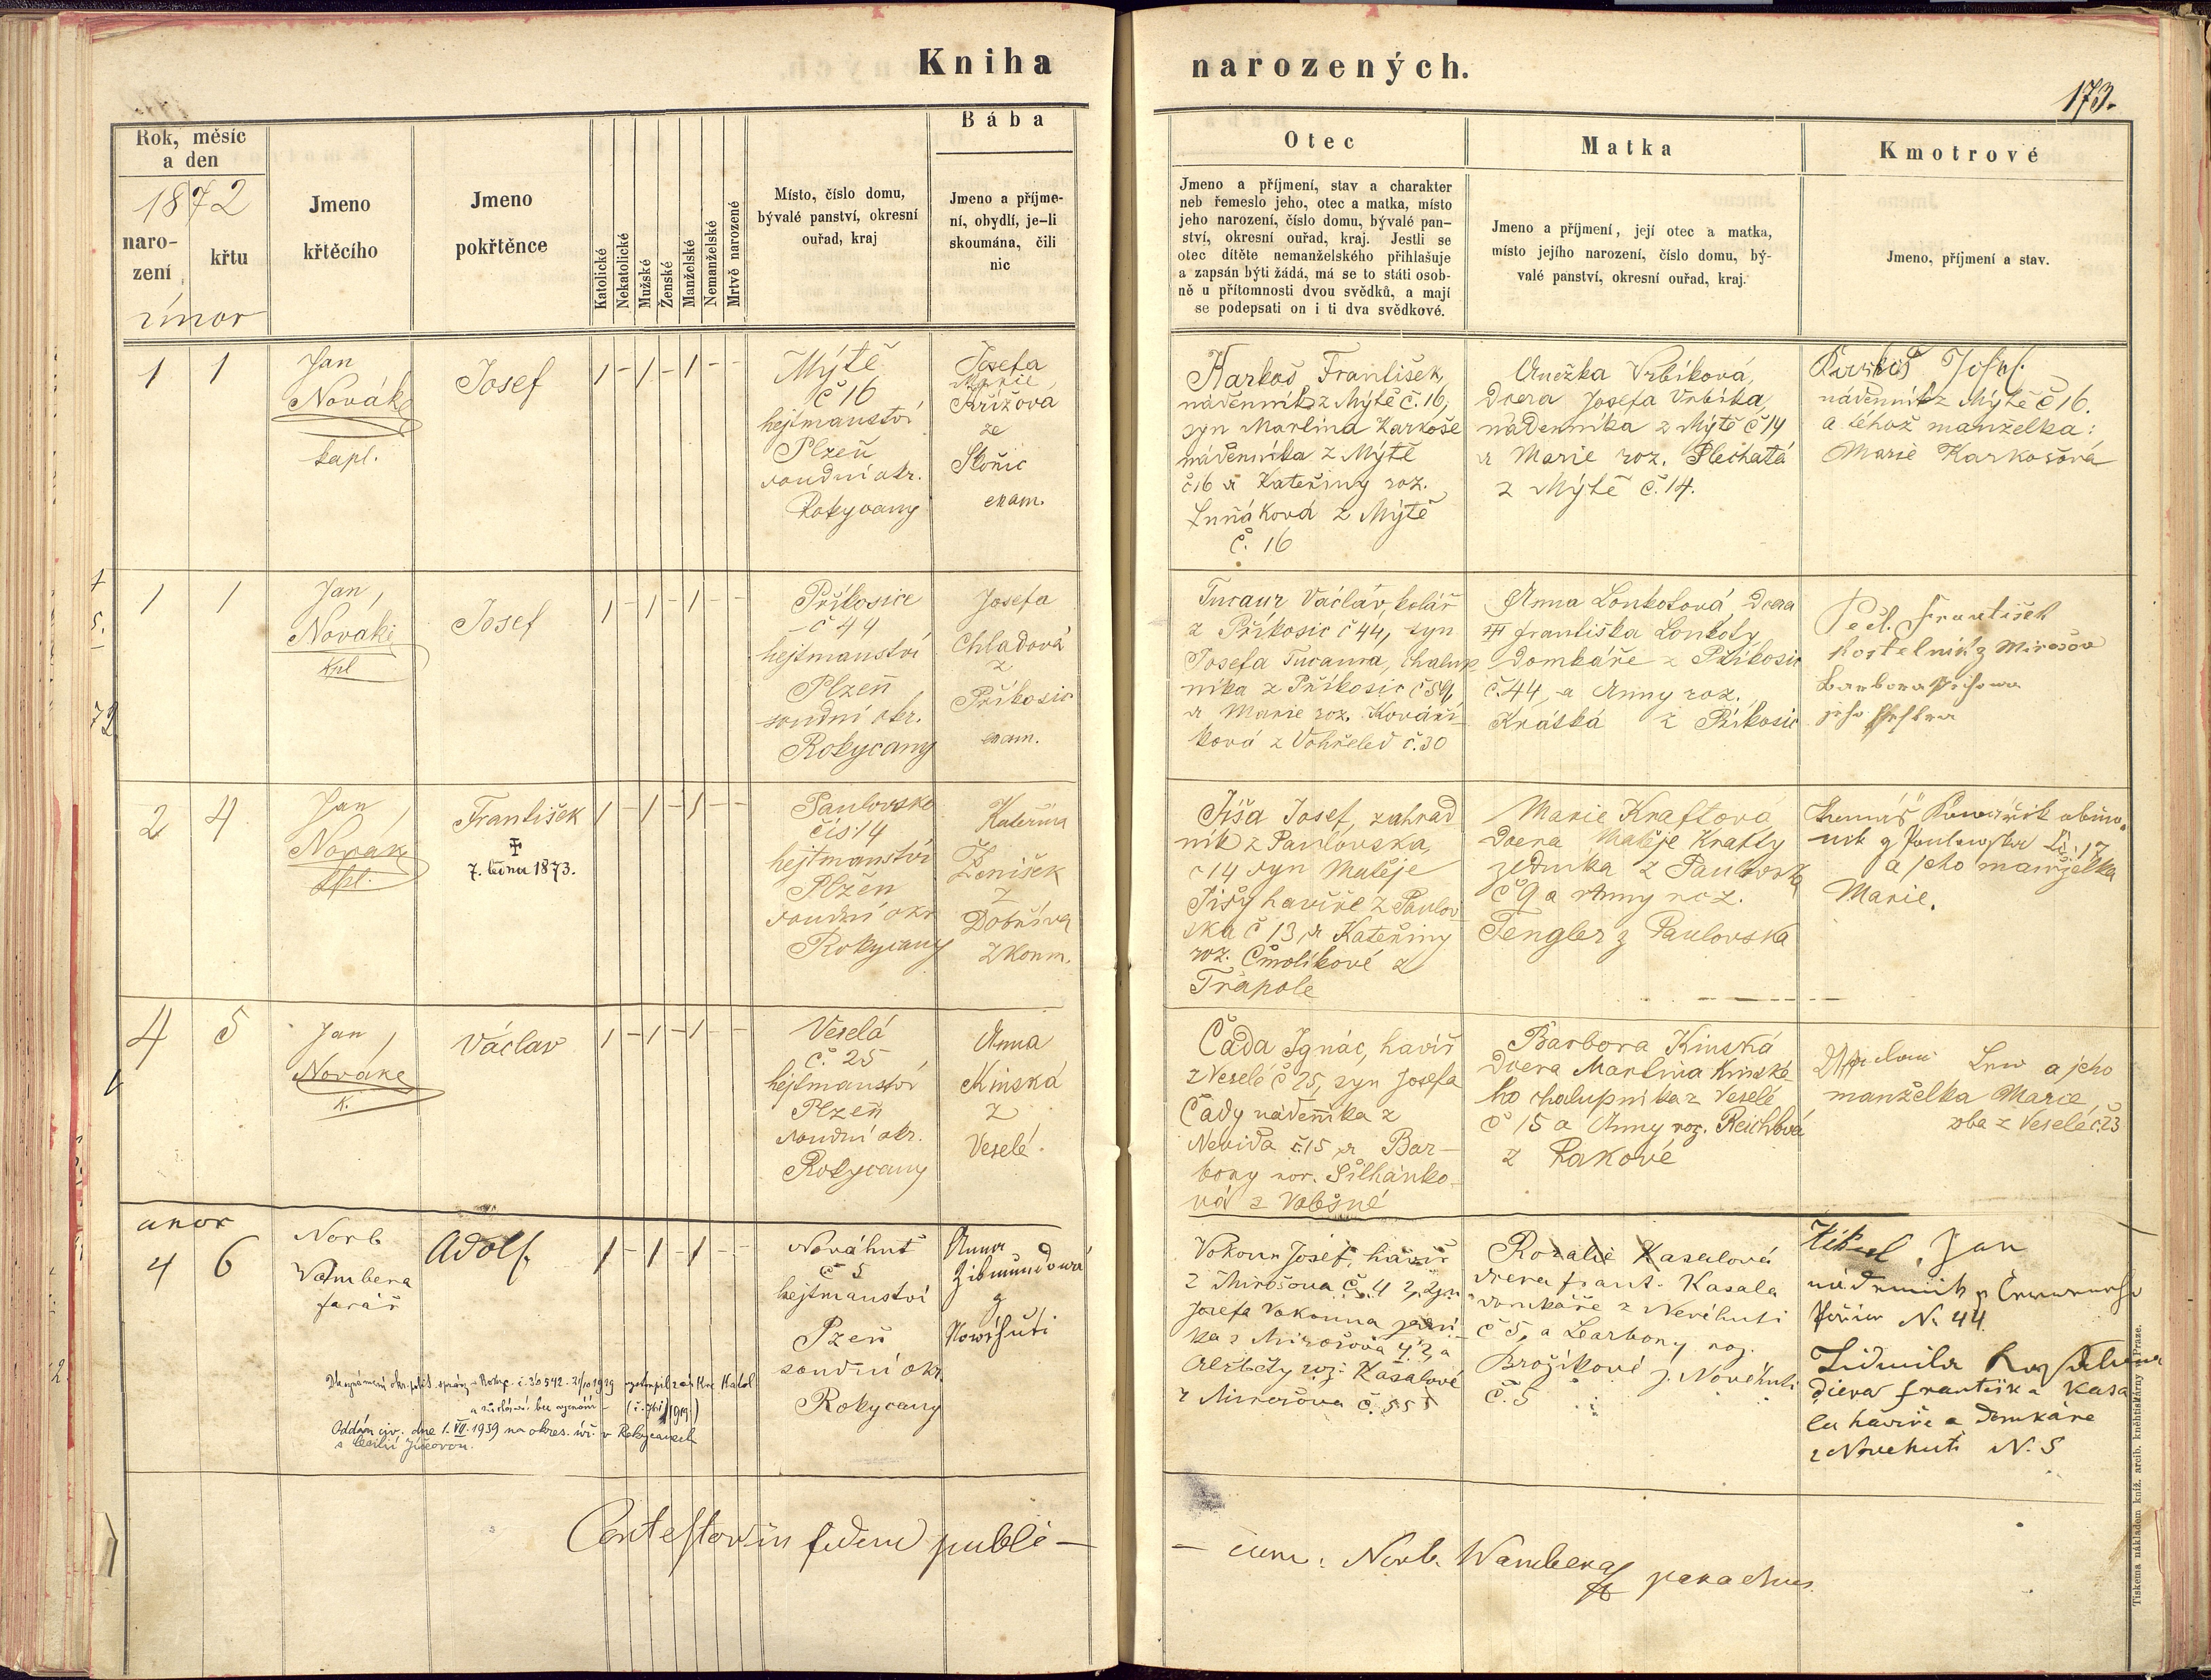 Kniha narozených.
173.
Rok, měsíc
a den
1872
naro-
zení
křtu
únor
Jmeno
křtěcího
Jmeno
pokřtěnce
Katolické
Nekatolické
Mužské
Ženské
Manželské
Nemanželské
Mrtvě narozené
Místo, číslo domu,
bývalé panství, okresní
ouřad, kraj
Bába
Jmeno a příjme-
ní, obydlí, je-li
skoumána, čili
nic
Otec
Jmeno a příjmení, stav a charakter
neb řemeslo jeho, otec a matka, místo
jeho narození, číslo domu, bývalé pan-
ství, okresní ouřad, kraj. Jestli se
otec dítěte nemanželského přihlašuje
a zapsán býti žádá, má se to státi osob-
ně u přítomnosti dvou svědků, a mají
se podepsati on i ti dva svědkové.
Matka
Jmeno a příjmení, její otec a matka,
místo jejího narození, číslo domu, bý-
valé panství, okresní ouřad, kraj.
Kmotrové
Jmeno, příjmení a stav.
1 1
Jan
Novák
kapl.
Josef
1 - 1 - 1 - -
Mýtě
č 16
hejtmanství
Plzeň
soudní okr.
Rokycany
Josefa
Marie
Křížova
ze
exam.
Karkoš František,
nádenník z Mýtě č. 16,
syn Martina Karkoše
nádenníka z Mýtě
č 16 a Kateřiny roz.
Luňáková z Mýtě
č. 16
Anežka Vrbíková,
Dcera Josefa Vrbíka,
nádenníka z Mýtě č 14
a Marie roz. Plechatá
z Mýtě č. 14.
Karkoš Josef.
nádenník z Mýtě č 16.
a téhož manželka:
Marie Karkošová
1 1
Jan
Novák
kpl
Josef
1 - 1 - 1 - -
Příkosice
č 44
hejtmanství
Plzeň
soudní okr.
Rokycany
Josefa
Chladová
z
Příkosic
exam.
Tucaur Václav, kolář
z Příkosic č 44, syn
Josefa Tucaura, chalup
níka z Příkosic č 59,
a Marie roz. Kováří-
ková z Vohřeled č. 30
Anna Lonkotová, Dcera
Františka Lonkoty
Domkáře z Příkosic
č. 44, a Anny roz.
Krátká z Příkosic
František
kostelník z Mirošov
Barbora
jeho
2 4
Jan
Novák
kpl.
František
7. ledna 1873.
1 - 1 - 1 - -
Paulovsko
čís: 14
hejtmanství
Plzeň
soudní okr
Rokycany
Kateřina
Ženíšek
z
Dobříva
zkoum.
Jíša Josef, zahrad
ník z Pavlovska,
č 14 syn Matěje
Jíšy havíře z Paulov
ska č 13, a Kateřiny
roz. Čmolíkové z
Trápole
Marie Kraftová
Dcera Matěje Krafty
zedníka z Paulovska
č 9 a Anny roz.
Fengler z Paulovska
a jeho manželka
Marie.
4 5
Jan
Novák
k.
Václav
1 - 1 - 1 - -
Veselá
č. 25
hejtmanství
Plzeň
soudní okr.
Rokycany
Anna
Kinská
z
Veselé.
Čada Ignác, havíř
z Veselé č 25, syn Josefa
Čady nádenníka z
Nevida č 15 a Bar-
bory roz. Šilhánko-
vá z Vobišné
Barbora Kinská
Dcera Martina Kinské-
ho chalupníka z Veselé
č 15 a Anny roz. Reichlová
z Rakové
a jeho
manželka Marie,
oba z Veselé č. 23
unor
4 6
Norb
Wambera
farář
Adolf.
1 - 1 - 1 - -
Nováhuť
č 5
hejtmanství
Pzeň
soudní okr.
Rokycany
Anna
Zikmundová
z
Nowéhuti
Vokoun Josef, havíř
z Mirošova č. 42, syn
Josefa Vokouna
ka z Mirošova 42, a
Alžběty roz. Kasalové
z Mirošova č. 55
Rozalie Kasalová
dcera frant. Kasala
domkáře z Novéhuti
č 5, a Barbory roz.
Brožíkové z Novéhuti
č. 5
Jan
nádenník
N. 44
Lidmila
dcera františka Kasa
la havíře a Domkáře
z Novehuti N. 5
Oddán civ. dne 1. VII. 1939 na okres. úř. v Rokycanech
Contestor in fidem publi-
-cam: Norb. Wambera parochus.
Tiskem a nákladem kníž. arcib. knihtiskárny v Praze.